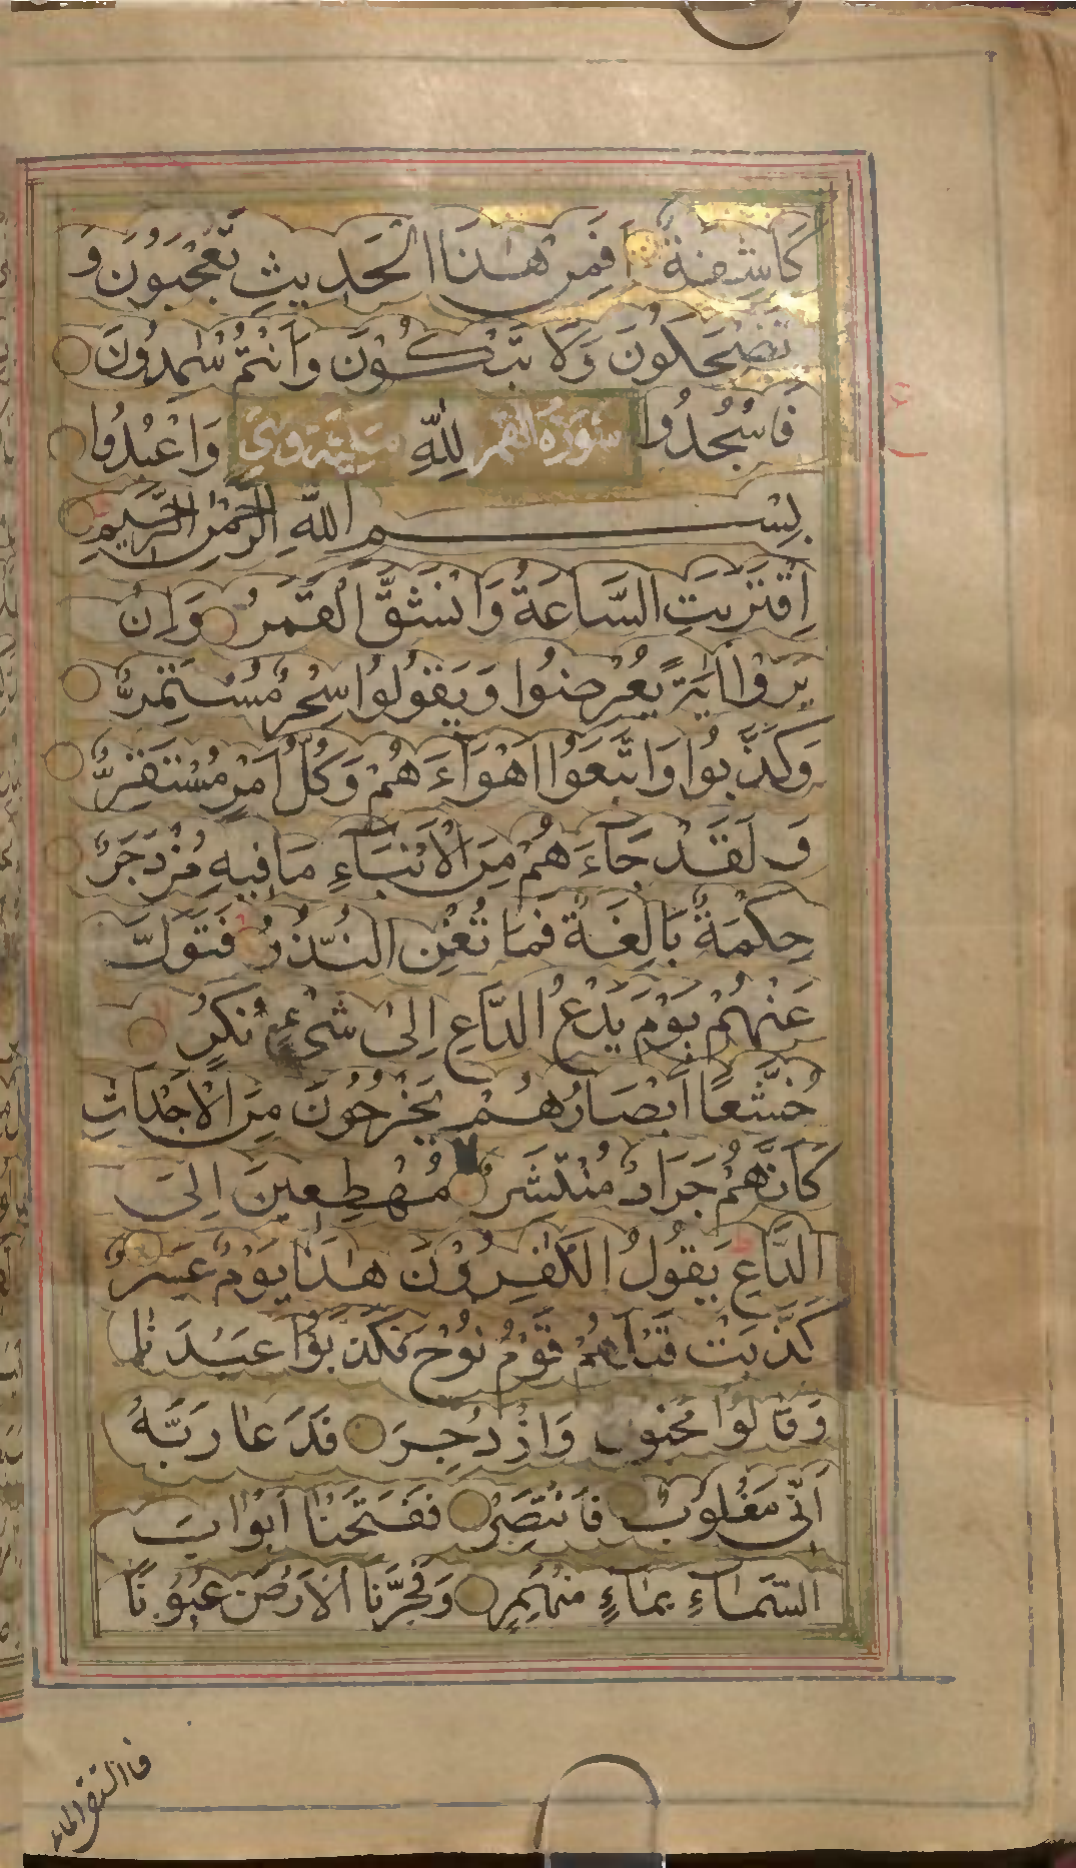 كَاشِفَةٌ اَفَمِنْ هٰذَا الْحَدِيثِ تَعْجَبُونَ وَ
تَضْحَكُونَ وَلَا تَبْكُونَ وَاَنْتُمْ سٰمِدُونَ
فَاسْجُدُوا لِلّٰهِ وَاعْبُدُوا
سُورَةُ الْقَمَر
بِسْمِ اللّٰهِ الرَّحْمٰنِ الرَّحِيمِ
اِقْتَرَبَتِ السَّاعَةُ وَانْشَقَّ الْقَمَرُ وَاِنْ
يَرَوْا اٰيَةً يُعْرِضُوا وَيَقُولُوا سِحْرٌ مُسْتَمِرٌّ
وَكَذَّبُوا وَاتَّبَعُوا اَهْوَاءَهُمْ وَكُلُّ اَمْرٍ مُسْتَقِرٌّ
وَلَقَدْ جَاءَهُمْ مِنَ الْاَنْبَاءِ مَا فِيهِ مُزْدَجَرٌ
حِكْمَةٌ بَالِغَةٌ فَمَا تُغْنِ النُّذُرُ فَتَوَلَّ
عَنْهُمْ يَوْمَ يَدْعُ الدَّاعِ اِلٰى شَيْءٍ نُكُرٍ
خُشَّعًا اَبْصَارُهُمْ يَخْرُجُونَ مِنَ الْاَجْدَاثِ
كَاَنَّهُمْ جَرَادٌ مُنْتَشِرٌ مُهْطِعِينَ اِلَى
الدَّاعِ يَقُولُ الْكٰفِرُونَ هٰذَا يَوْمٌ عَسِرٌ
كَذَّبَتْ قَبْلَهُمْ قَوْمُ نُوْحٍ فَكَذَّبُوْا عَبْدَنَا
وَقَالُوْا مَجْنُونٌ وَازْدُجِرَ فَدَعَا رَبَّهُ
اَنِّى مَغْلُوْبٌ فَانْتَصِرْ فَفَتَحْنَا اَبْوَابَ
السَّمَاءِ بِمَاءٍ مُنْهَمِرٍ وَفَجَّرْنَا الْاَرْضَ عُيُوْنًا
فالتقى الماء